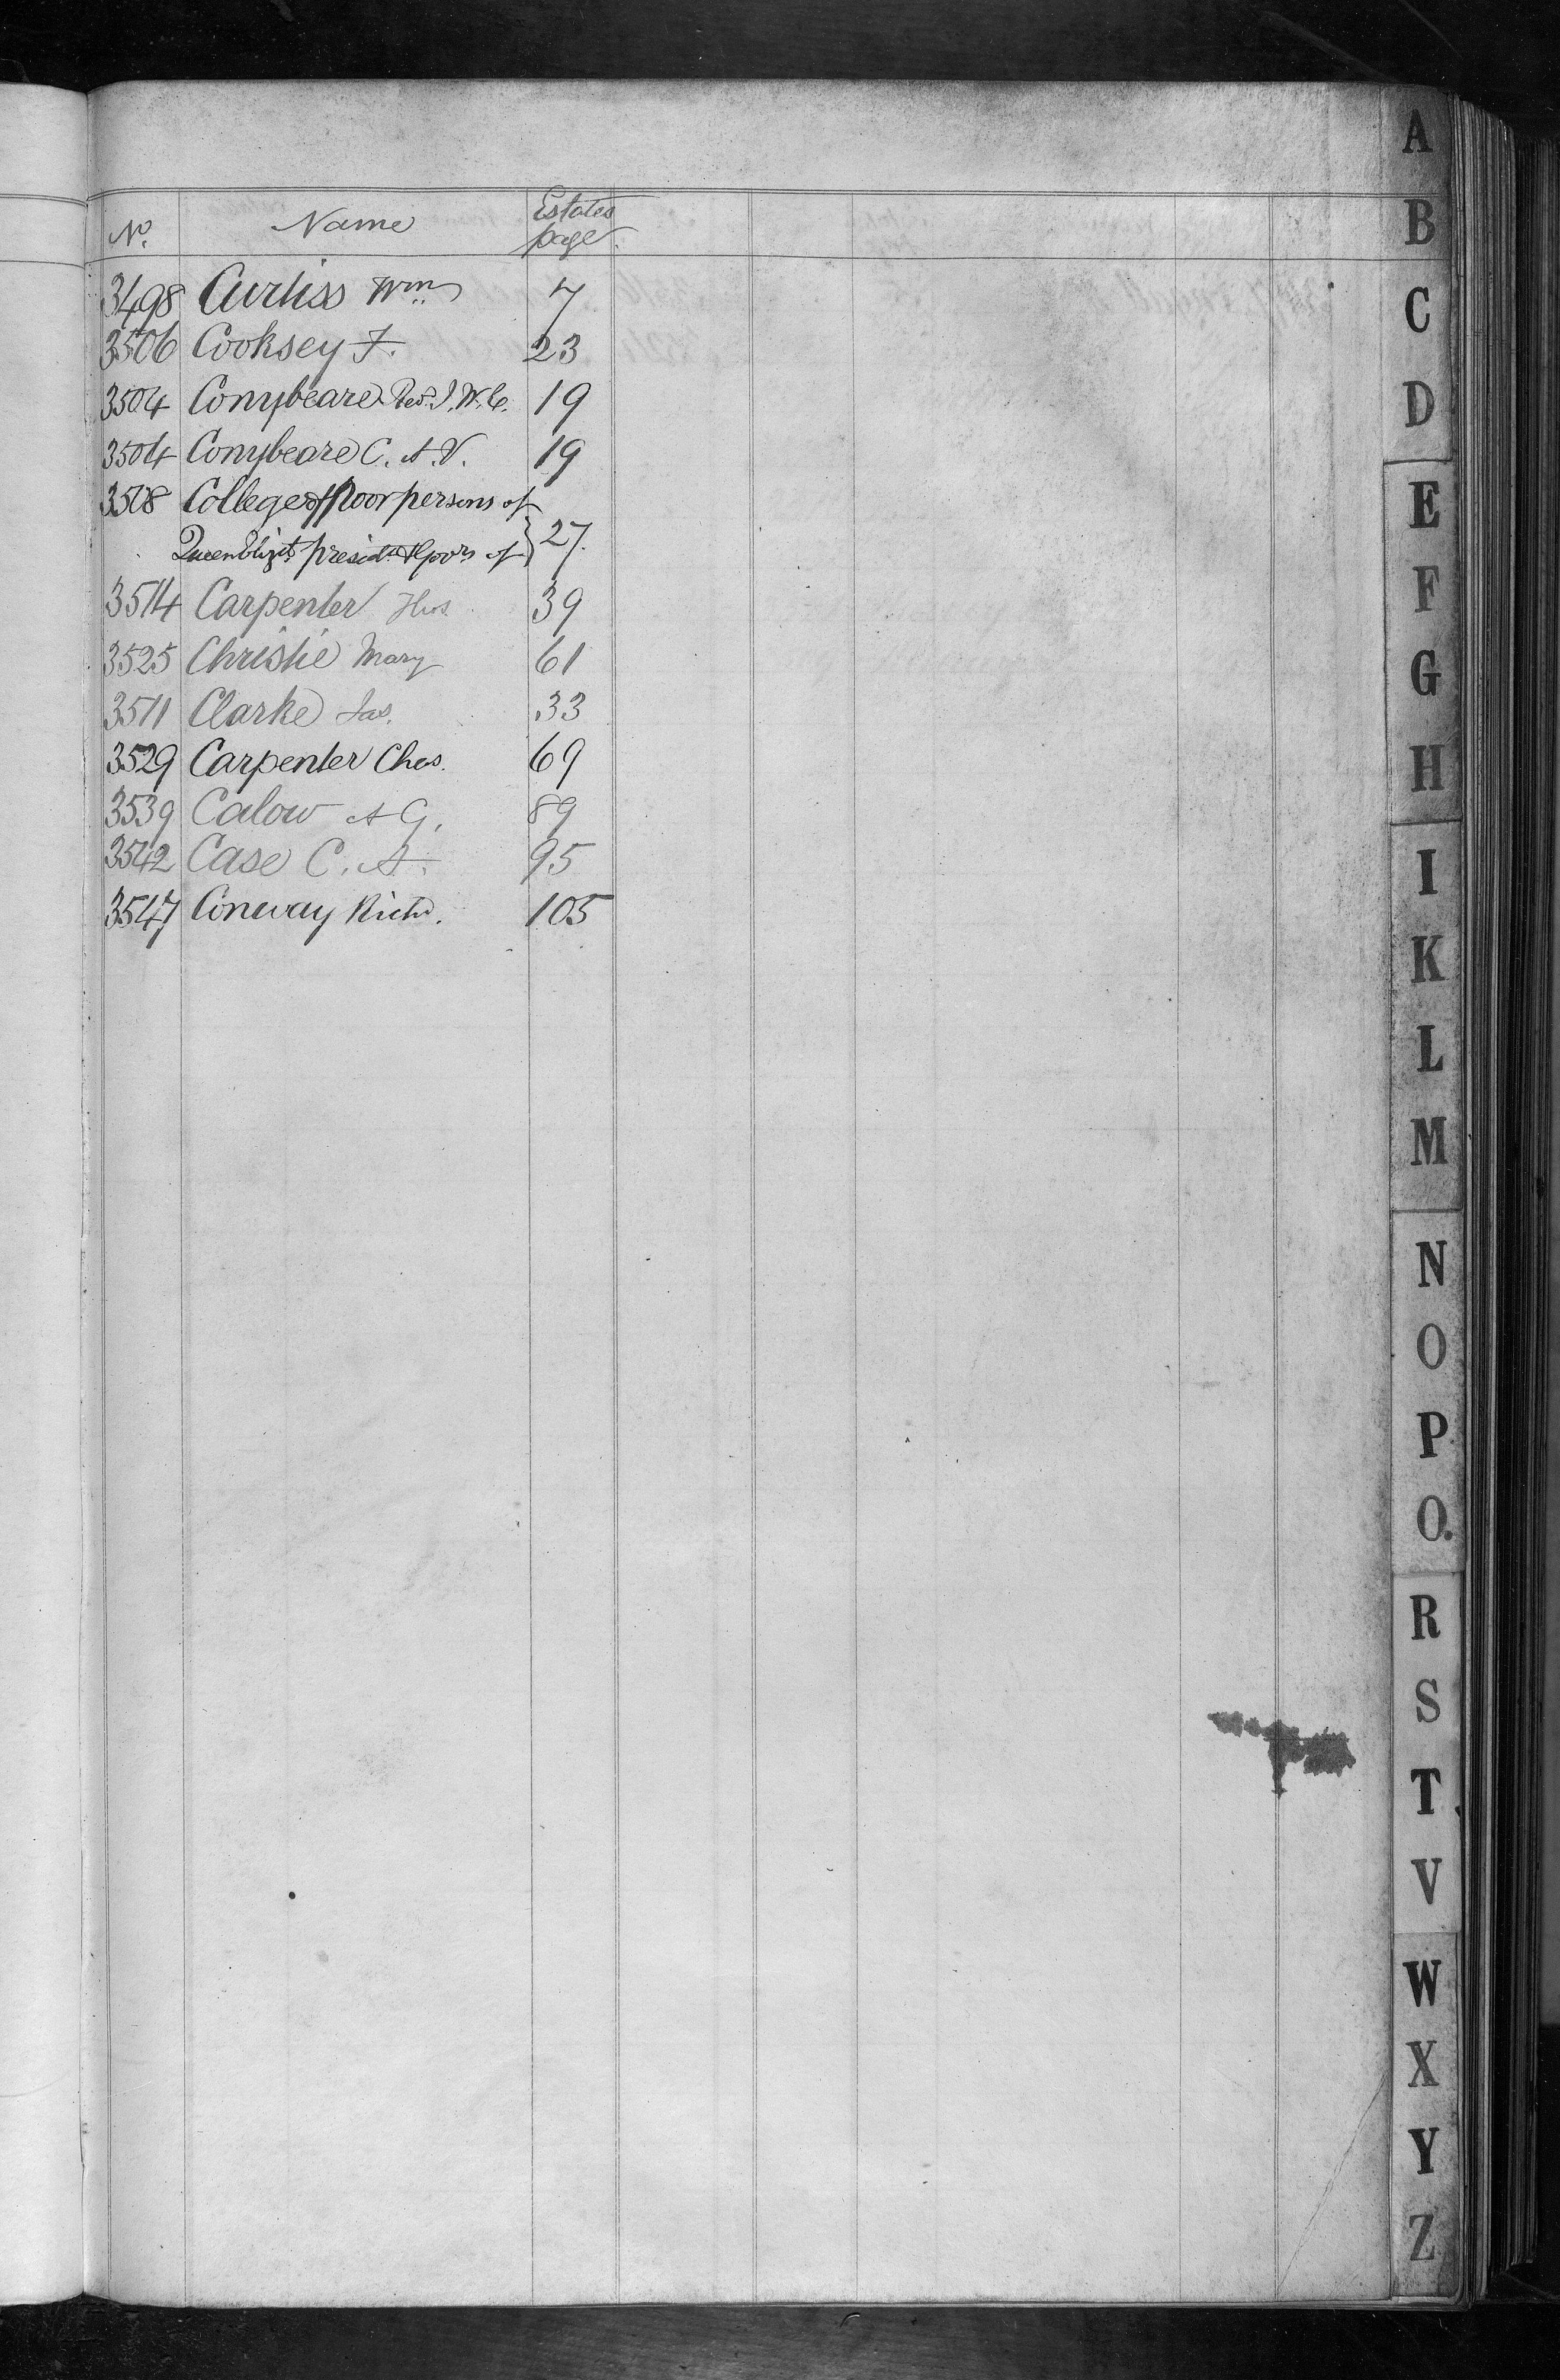 No. Name Estates page.
3498 Curtiss Wm 7
3506 Cooksey F. 23
3504 Conybeare Revd. J. W. C. 19
3504 Conybeare C. A. V. 19
3508 College of Poor persons of
Queen Elizth. presidt. & Govrs of } 27.
3514 Carpenter Thos 39
3525 Christie Mary 61
3511 Clarke Jas. 33
3529 Carpenter Chas. 69
3539 Calow A G. 89
3542 Case C. A. 95
3547 Conway Richd. 105
A
B
C
D
E
F
G
H
I
K
L
M
N
O
P
Q.
R
S
T
V
W
X
Y
Z